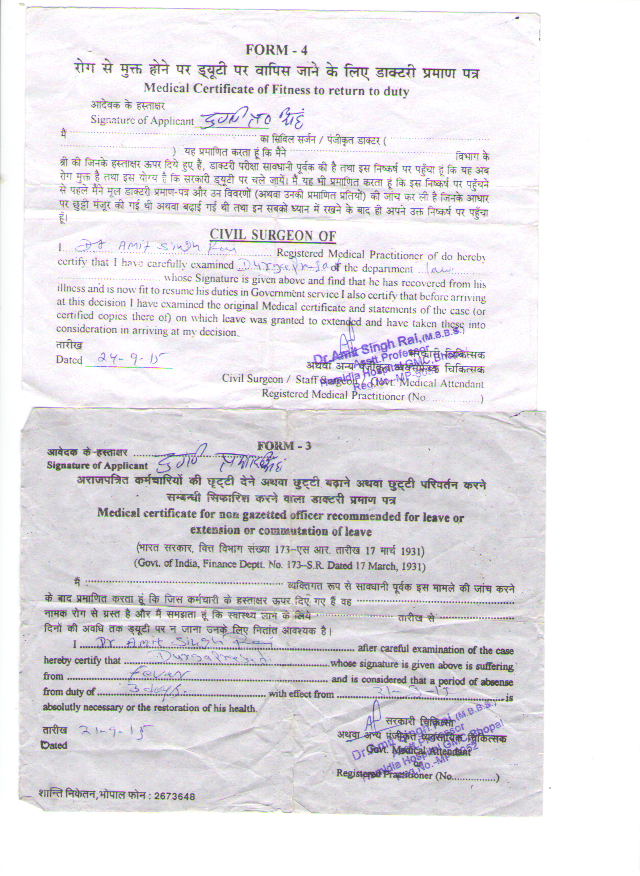 FORM - 4
रोग से मुक्त होने पर ड्यूटी पर वापिस जाने के लिए डाक्टरी प्रमाण पत्र
Medical Certificate of Fitness to return to duty
आदेवक के हस्ताक्षर
Signature of Applicant
मैं का सिविल सर्जन / पंजीकृत डाक्टर (
) यह प्रमाणित करता हूं कि मैंने विभाग के
श्री की जिनके हस्ताक्षर ऊपर दिये हुए हैं, डाक्टरी परीक्षा सावधानी पूर्वक की है तथा इस निष्कर्ष पर पहुँचा हूं कि यह अब
रोग मुक्त है तथा इस योग्य है कि सरकारी ड्यूटी पर चले जायें। मैं यह भी प्रमाणित करता हूं कि इस निष्कर्ष पर पहुँचने
से पहले मैंने मूल डाक्टरी प्रमाण-पत्र और उन विवरणों (अथवा उनकी प्रमाणित प्रतियों) की जांच कर ली है जिनके आधार
पर छुट्टी मंजूर की गई थी अथवा बढ़ाई गई थी तथा इन सबको ध्यान में रखने के बाद ही अपने उक्त निष्कर्ष पर पहुँचा
हूँ।
CIVIL SURGEON OF
I Dr AMIT Singh Rai Registered Medical Practitioner of do hereby
certify that I have carefully examined of the department law
whose Signature is given above and find that he has recovered from his
illness and is now fit to resume his duties in Government service I also certify that before arriving
at this decision I have examined the original Medical certificate and statements of the case (or
certified copies there of) on which leave was granted to extended and have taken these into
consideration in arriving at my decision.
तारीख
Dated 24-9-15
Dr. Amit Singh Rai, (M.B.B.S.)
Asstt. Professor
Hamidia Hospital GMC, Bhopal
सरकारी चिकित्सक
अथवा अन्य पंजीकृत व्यवसायिक चिकित्सक
Civil Surgeon / Staff Surgeon / Govt. Medical Attendant
Registered Medical Practitioner (No. )
FORM - 3
आवेदक के हस्ताक्षर
Signature of Applicant
अराजपत्रित कर्मचारियों की छृट्टी देने अथवा छुट्टी बढ़ाने अथवा छुट्टी परिवर्तन करने
सम्बन्धी सिफारिश करने वाला डाक्टरी प्रमाण पत्र
Medical certificate for non gazetted officer recommended for leave or
extension or commutation of leave
(भारत सरकार, वित्त विभाग संख्या 173-एस आर. तारीख 17 मार्च 1931)
(Govt. of India, Finance Deptt. No. 173-S.R. Dated 17 March, 1931)
मैं व्यक्तिगत रूप से सावधानी पूर्वक इस मामले की जांच करने
के बाद प्रमाणित करता हूं कि जिस कर्मचारी के हस्ताक्षर ऊपर दिए गए हैं वह
नामक रोग से ग्रस्त है और मैं समझता हूं कि स्वास्थ्य लाभ के लिये तारीख से
दिनों की अवधि तक ड्यूटी पर न जाना उनके लिए नितांत आवश्यक है।
I Dr AMIT Singh Rai after careful examination of the case
hereby certify that Durgaprasad whose signature is given above is suffering
from fever and is considered that a period of absense
from duty of 3 days. with effect from is
absolutely necessary or the restoration of his health.
तारीख 21-9-15
Dated
सरकारी चिकित्सा
अथवा अन्य पंजीकृत व्यवसायिक चिकित्सक
Dr. Amit Singh Rai, (M.B.B.S.)
Asstt. Professor
Hamidia Hospital GMC, Bhopal
Govt. Medical Attendant
or
Registered Practitioner (No. )
शान्ति निकेतन, भोपाल फोन : 2673648